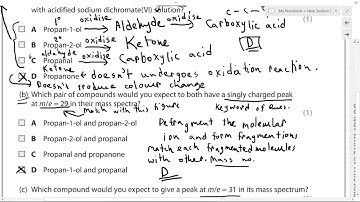 My Notebook > New Section 1
with acidified sodium dichromate(VI) solution?
C - C -
(1)
1° oxidise oxidise
A Propan-1-ol → Aldehyde → Carboxylic acid
2° oxidise
B Propan-2-ol → Ketone
D
aldehyde oxidize
C Propanal → Carboxylic acid
Ketone
D Propanone doesn't undergoes oxidation reaction.
Doesn't produce colour change
(b) Which pair of compounds would you expect to both have a singly charged peak
at m/e = 29 in their mass spectra?
(1)
match with this figure
keyword of Ques.
A Propan-1-ol and propan-2-ol
Defragment the molecular
ion and form fragmentions
B Propan-2-ol and propanal
match each fragmented molecules
C Propanal and propanone
with other. Mass no.
D Propan-1-ol and propanal
D
(c) Which compound would you expect to give a peak at m/e = 31 in its mass spectrum?
(1)